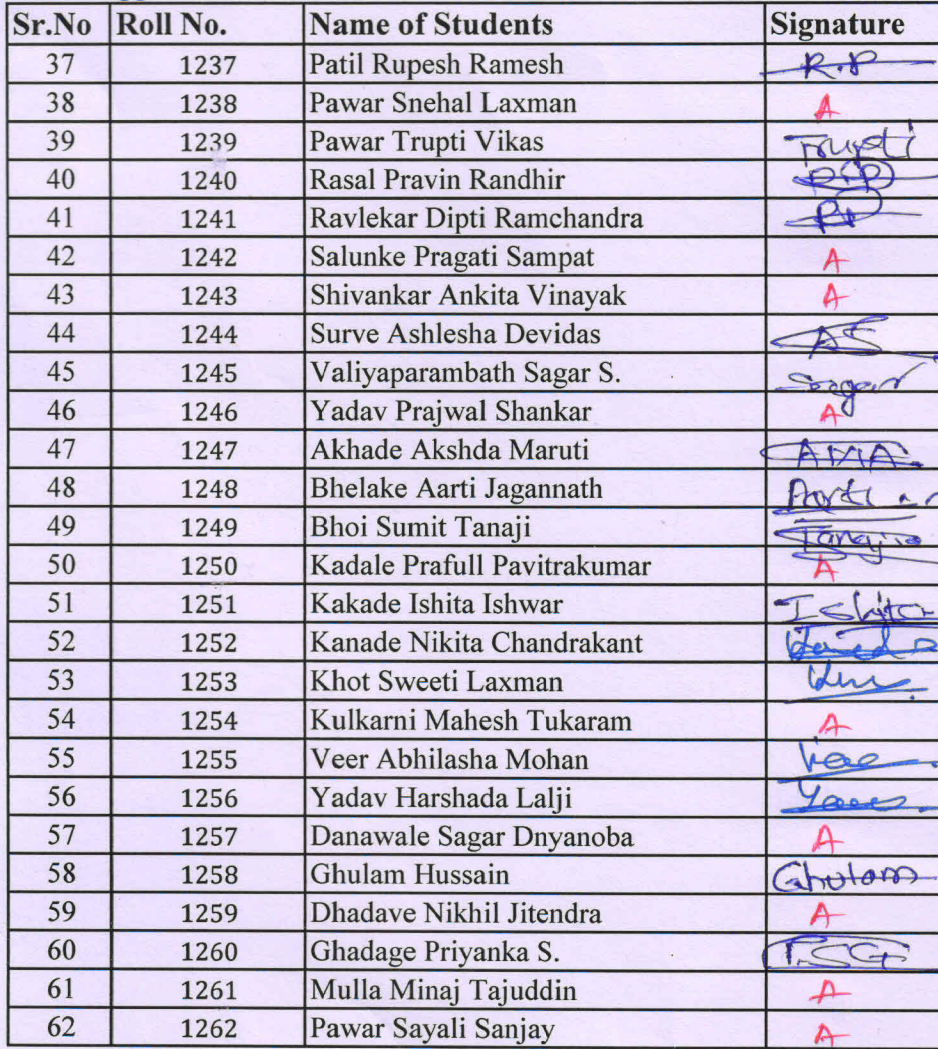 Sr.No Roll No. Name of Students Signature
37 1237 Patil Rupesh Ramesh R.P
38 1238 Pawar Snehal Laxman A
39 1239 Pawar Trupti Vikas Trupti
40 1240 Rasal Pravin Randhir
41 1241 Ravlekar Dipti Ramchandra
42 1242 Salunke Pragati Sampat A
43 1243 Shivankar Ankita Vinayak A
44 1244 Surve Ashlesha Devidas AS
45 1245 Valiyaparambath Sagar S. Sagar
46 1246 Yadav Prajwal Shankar A
47 1247 Akhade Akshda Maruti AMA
48 1248 Bhelake Aarti Jagannath Aarti
49 1249 Bhoi Sumit Tanaji
50 1250 Kadale Prafull Pavitrakumar A
51 1251 Kakade Ishita Ishwar Ishita
52 1252 Kanade Nikita Chandrakant
53 1253 Khot Sweeti Laxman
54 1254 Kulkarni Mahesh Tukaram A
55 1255 Veer Abhilasha Mohan
56 1256 Yadav Harshada Lalji
57 1257 Danawale Sagar Dnyanoba A
58 1258 Ghulam Hussain Ghulam
59 1259 Dhadave Nikhil Jitendra A
60 1260 Ghadage Priyanka S. P.SG
61 1261 Mulla Minaj Tajuddin A
62 1262 Pawar Sayali Sanjay A